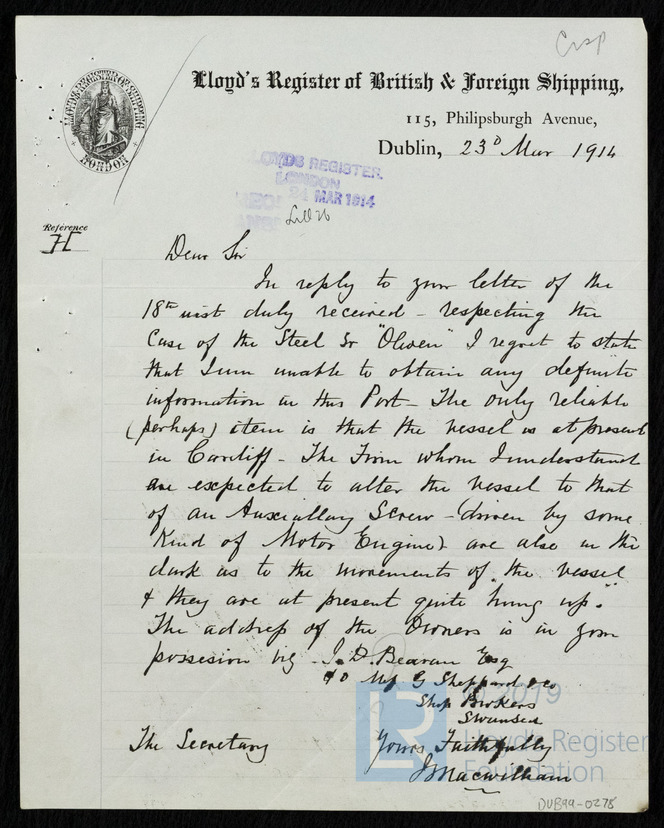 Crsp
Lloyd's Register of British & Foreign Shipping,
LLOYD'S REGISTER OF BRITISH & FOREIGN SHIPPING
LONDON
115, Philipsburgh Avenue,
Dublin, 23d Mar 1914
LLOYDS REGISTER.
LONDON
24 MAR 1914
Reference
H
Dear Sir
In reply to your letter of the
18th inst duly received - respecting the
Case of the Steel Sr "Olwen" I regret to state
that I am unable to obtain any definite
information in this Port - The only reliable
(perhaps) item is that the vessel is at present
in Cardiff - The Firm whom I understand
are expected to alter the vessel to that
of an Auxiallary Screw - (driven by some
Kind of Motor Engine) are also in the
dark as to the movements of the vessel
& they are at present quite hung up.
The address of the Owners is in your
possesion viz - J. D. Beavan Esq
c/o Mss G Sheppard & Co
Ship Brokers
Swansea
The Secretary
Yours Faithfully
J Macwilliam
© 2019
LR
Lloyd's Register
Foundation
DUB99-0278